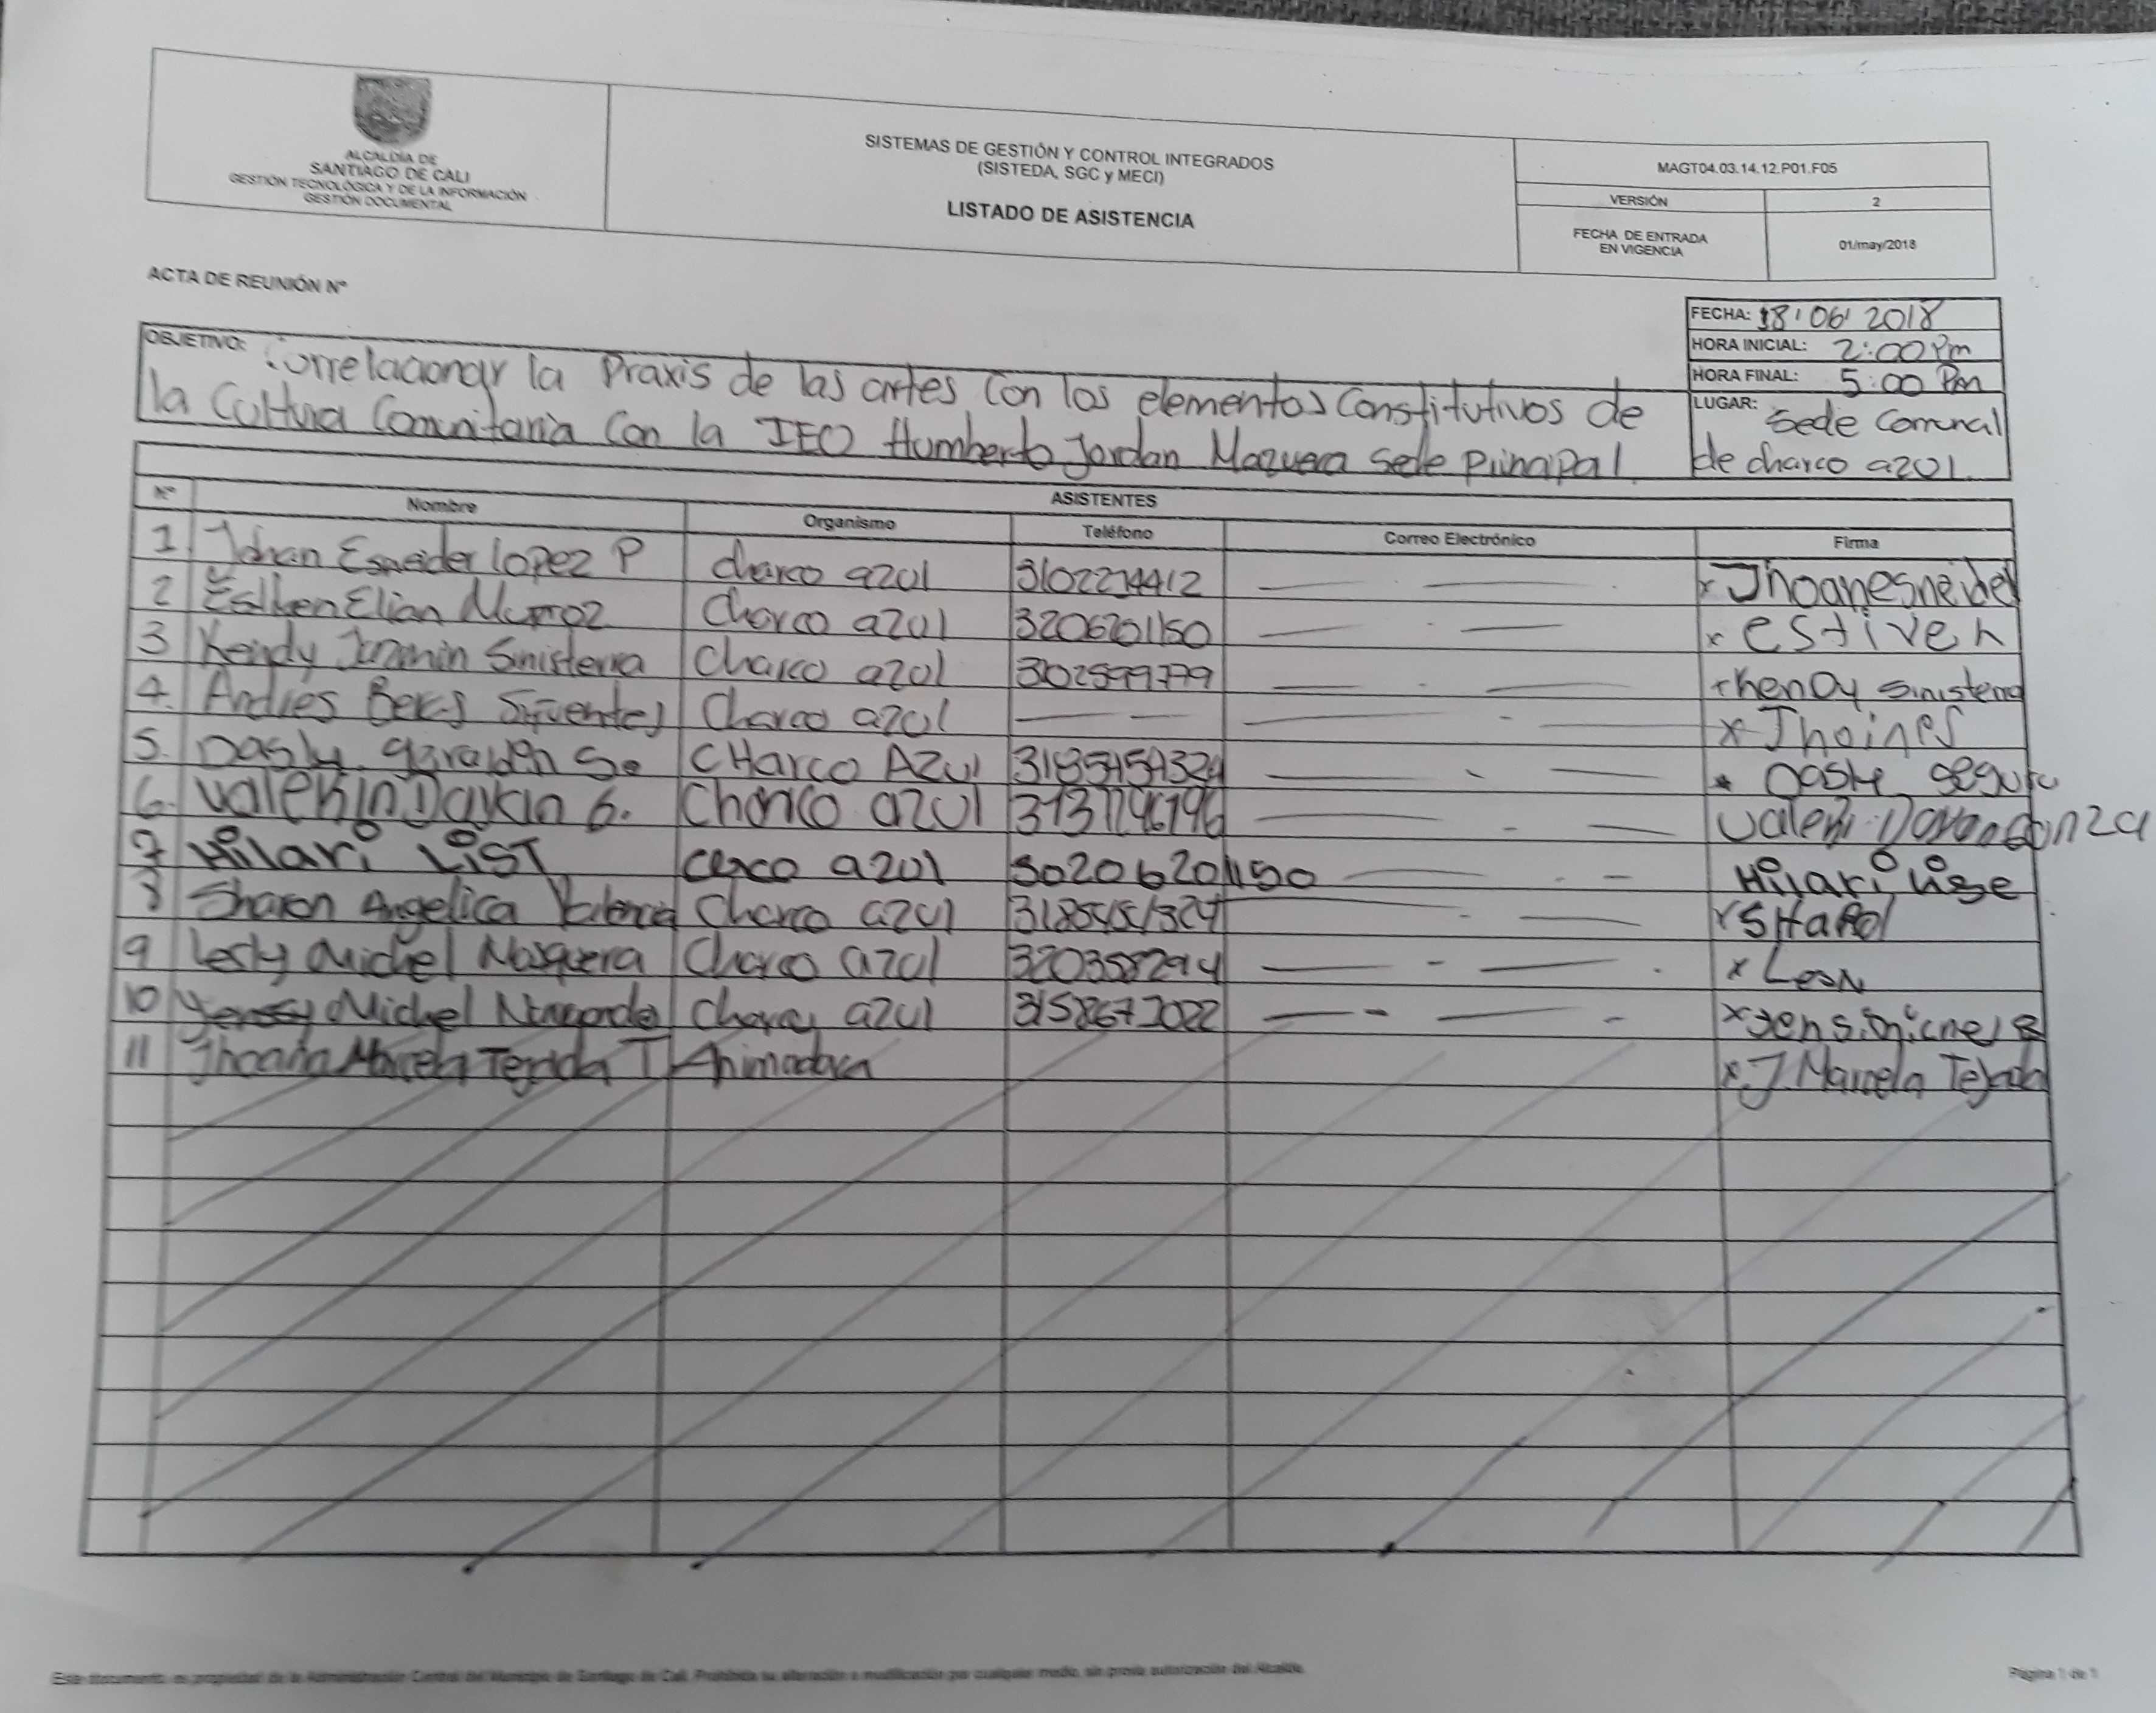 ALCALDÍA DE
SANTIAGO DE CALI
GESTIÓN TECNOLÓGICA Y DE LA INFORMACIÓN
GESTIÓN DOCUMENTAL
SISTEMAS DE GESTIÓN Y CONTROL INTEGRADOS
(SISTEDA, SGC y MECI)
LISTADO DE ASISTENCIA
MAGT04.03.14.12.P01.F05
VERSIÓN 2
FECHA DE ENTRADA
EN VIGENCIA
01/may/2018
ACTA DE REUNIÓN Nº
FECHA: 18/06/2018
HORA INICIAL: 2:00 Pm
HORA FINAL: 5:00 Pm
LUGAR: Sede Comunal
de charco azul.
OBJETIVO: Correlacionar la Praxis de las artes con los elementos Constitutivos de
la Cultura Comunitaria con la IEO Humberto Jordan Mazuera Sede principal.
ASISTENTES
Nº Nombre Organismo Teléfono Correo Electrónico Firma
1 Johan Esneider lopez P charco azul 3102274412 x Jhoanesneider
2 Elian Charco azul 3206201150 x estiven
3 Keindy Sinisterra Charco azul 302599779 x kenDy sinisterra
4. Andres Charco azul x
5. Dasly CHarco AZul 3185454324
6. Charco azul
7 Hilari LiST azul 30206201150 Hilari lise
8 Sharon Angelica Valencia Charco azul
9 Lesly Michel Mosquera Charco azul 320358294 x
10 Michel azul 3158673022 x
11 Jhoana Marcela Tejada T Animadora x J. Marcela Tejada
Este documento es propiedad de la Administración Central del Municipio de Santiago de Cali. Prohibida su alteración o modificación por cualquier medio, sin previa autorización del Alcalde.
Página 1 de 1